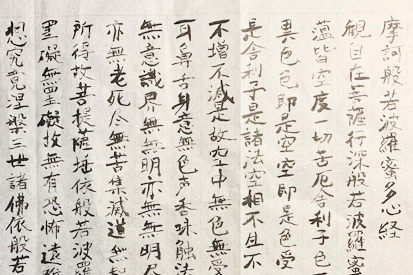 摩訶般若波羅蜜多心経
観自在菩薩行深般若波羅蜜
蘊皆空度一切苦厄舎利子色
異色色即是空空即是色受
是舎利子是諸法空相不生不
不増不減是故空中無色無受
耳鼻舌身意無色声香味触法
無意識界無無明亦無無明尽
亦無老死尽無苦集滅道無
所得故菩提薩埵依般若波羅
罣礙無罣礙故無有恐怖遠離
想究竟涅槃三世諸佛依般若